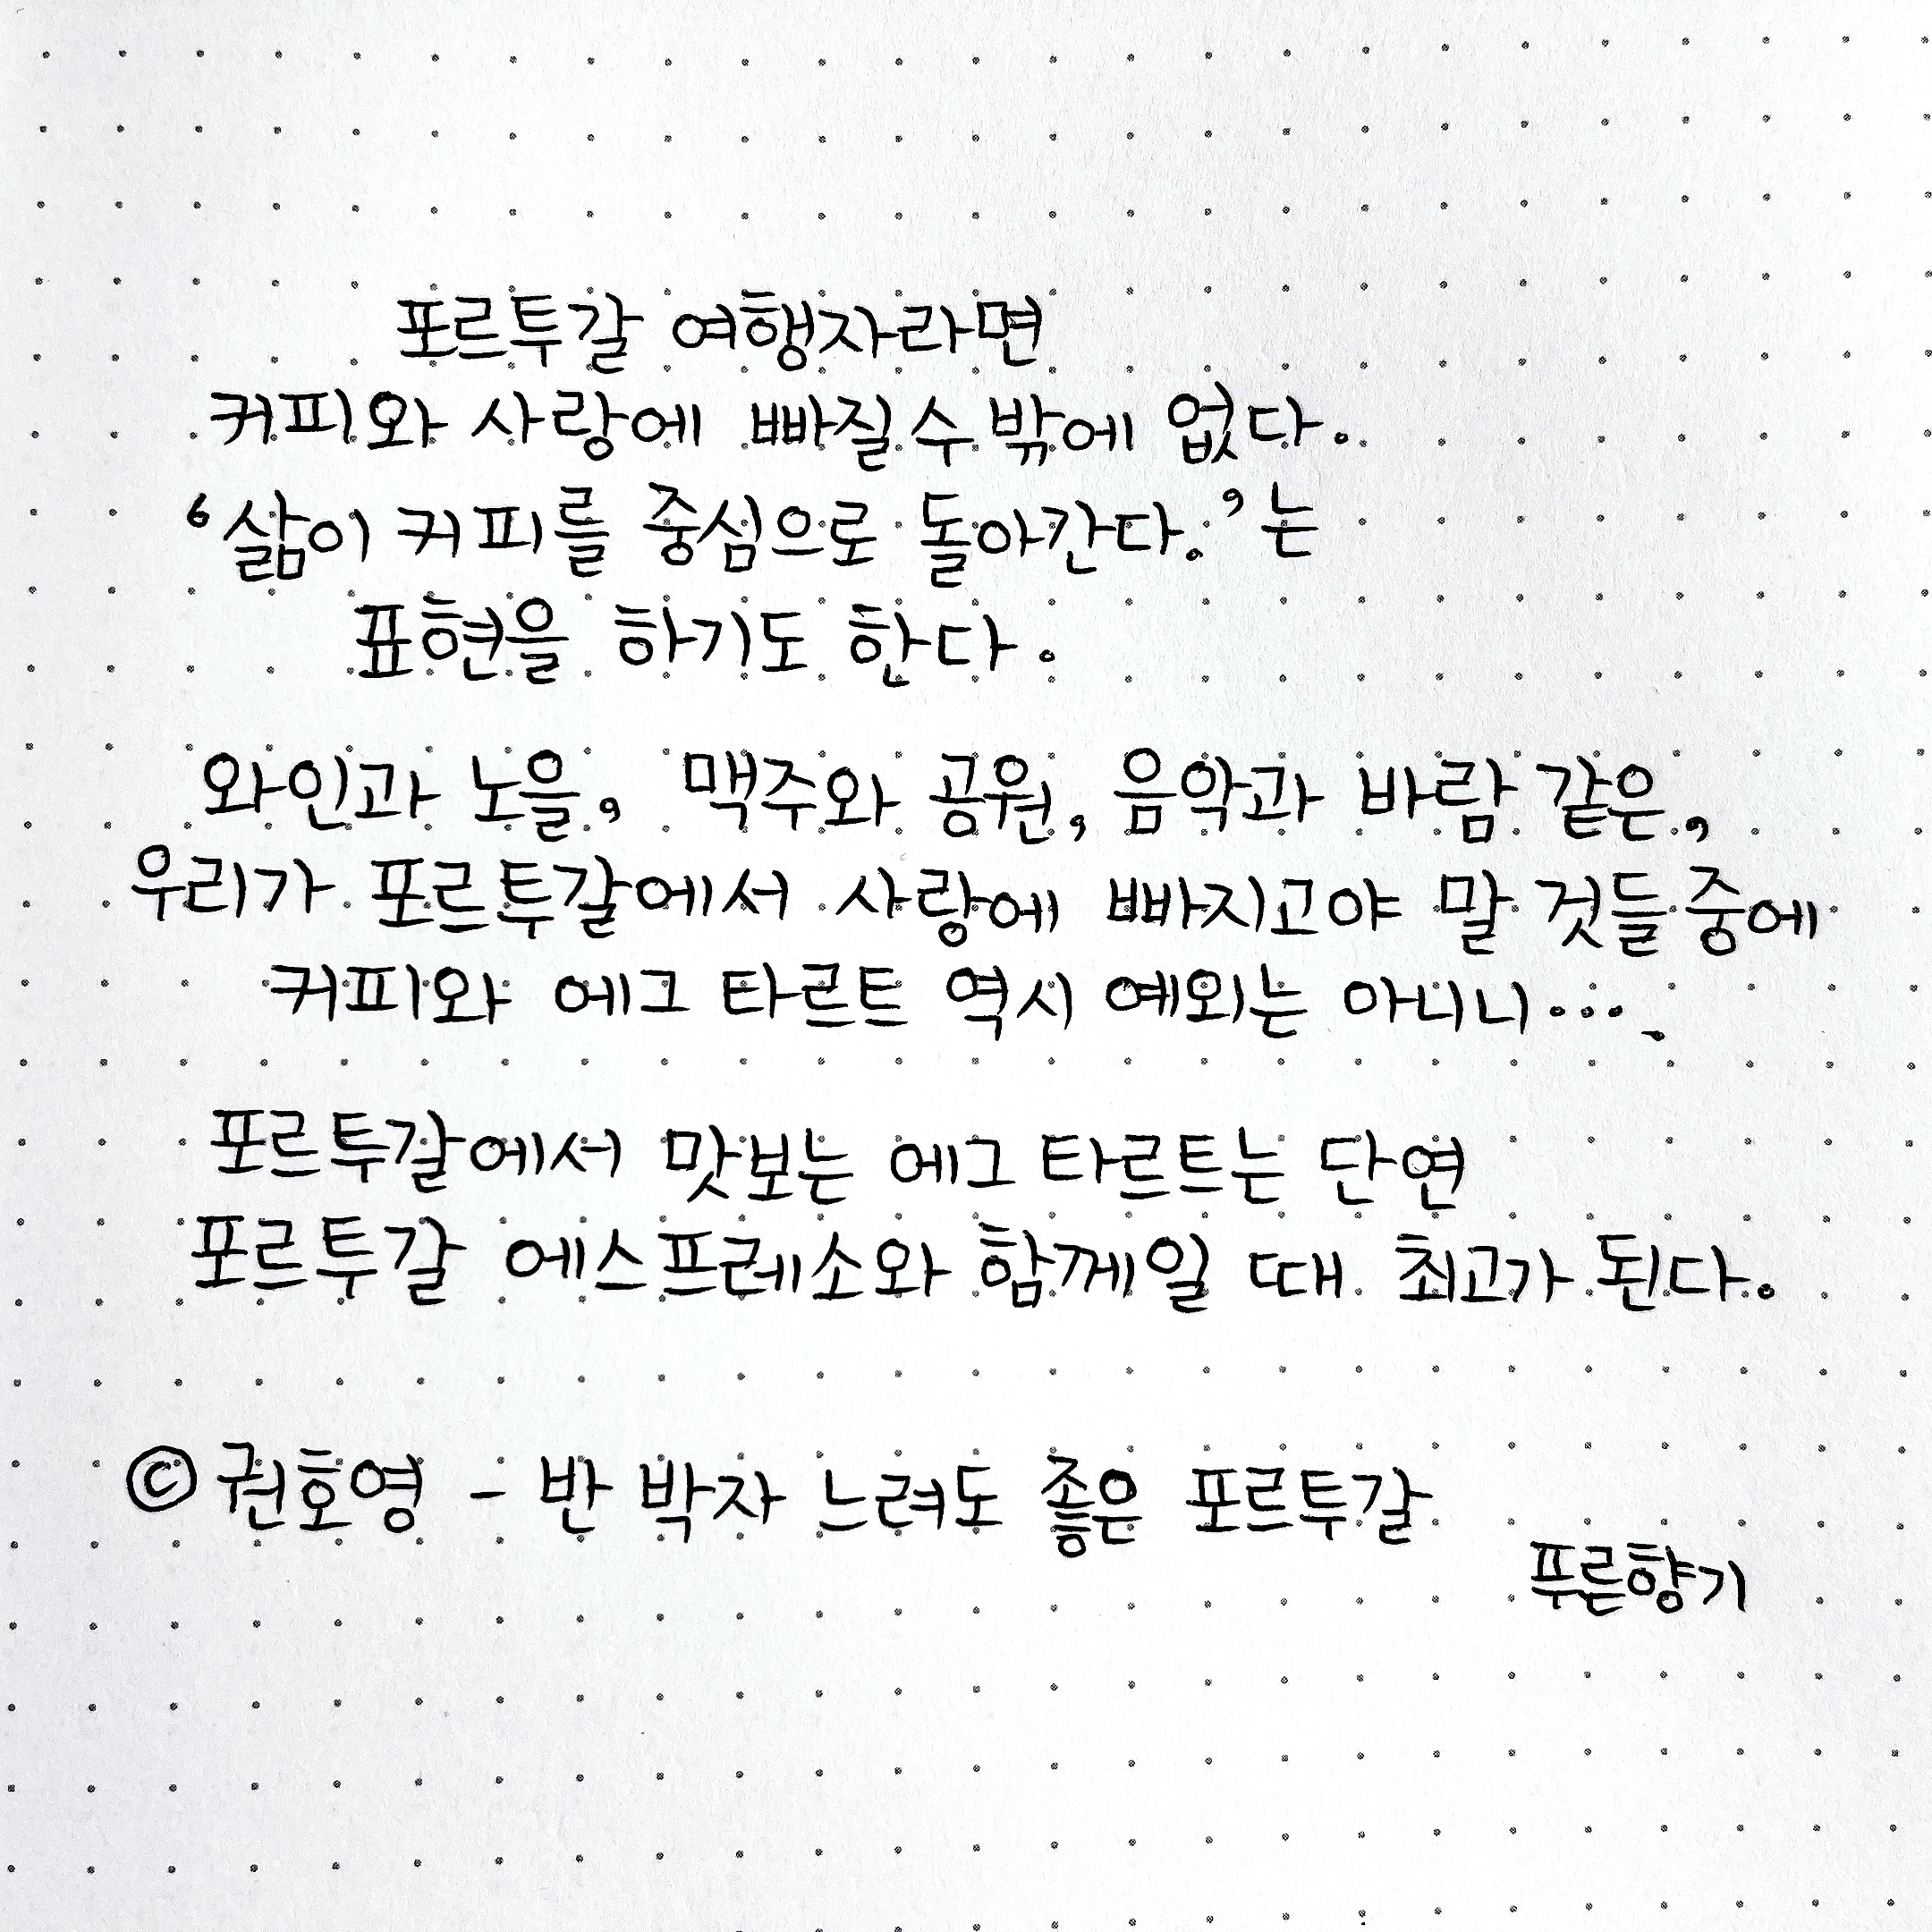 포르투갈 여행자라면
커피와 사랑에 빠질 수 밖에 없다.
'삶이 커피를 중심으로 돌아간다.'는
표현을 하기도 한다.
와인과 노을, 맥주와 공원, 음악과 바람 같은,
우리가 포르투갈에서 사랑에 빠지고야 말 것들 중에
커피와 에그 타르트 역시 예외는 아니니...
포르투갈에서 맛보는 에그 타르트는 단연
포르투갈 에스프레소와 함께일 때 최고가 된다.
© 권호영 - 반 박자 느려도 좋은 포르투갈
푸른향기